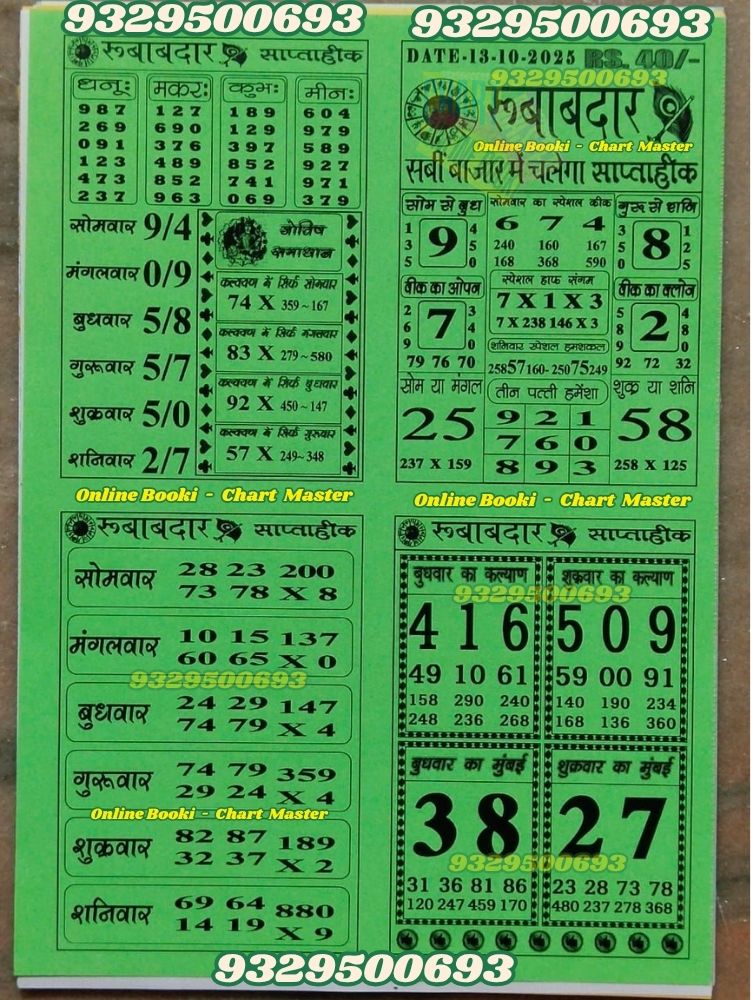 9329500693
9329500693
रूबाबदार साप्ताहीक
धनूः मकरः कुभः मीनः
987 127 189 604
269 690 129 979
091 376 397 589
123 489 852 927
473 852 741 971
237 963 069 379
सोमवार 9/4
मंगलवार 0/9
बुधवार 5/8
गुरूवार 5/7
शुक्रवार 5/0
शनिवार 2/7
जोतिष
समाधान
कल्याण में सिर्फ सोमवार
74 X 359~167
कल्याण में सिर्फ मंगलवार
83 X 279~580
कल्याण में सिर्फ बुधवार
92 X 450~147
कल्याण में सिर्फ गुरूवार
57 X 249~348
Online Booki - Chart Master
DATE-13-10-2025 RS. 40/-
9329500693
रूबाबदार
Online Booki - Chart Master
सबीं बाजार में चलेगा साप्ताहीक
सोम से बुध
1 4
3 9 5
5 0
सोमवार का स्पेशल वीक
6 7 4
240 160 167
168 368 590
गुरू से शनि
3 1
5 8 2
8 5
वीक का ओपन
2 3
6 7 4
9 0
79 76 70
स्पेशल हाफ संगम
7 X 1 X 3
7 X 238 146 X 3
शनिवार स्पेशल हमशकल
25857160-25075249
वीक का क्लोज
5 4
8 2 6
9 0
92 72 32
सोम या मंगल
25
237 X 159
तीन पत्ती हमेंशा
9 2 1
7 6 0
8 9 3
शुक्र या शनि
58
258 X 125
Online Booki - Chart Master
रूबाबदार साप्ताहीक
सोमवार 28 23 200
73 78 X 8
मंगलवार 10 15 137
60 65 X 0
9329500693
बुधवार 24 29 147
74 79 X 4
गुरूवार 74 79 359
29 24 X 4
Online Booki - Chart Master
शुक्रवार 82 87 189
32 37 X 2
शनिवार 69 64 880
14 19 X 9
रूबाबदार साप्ताहीक
बुधवार का कल्याण
9329500693
416
49 10 61
158 290 240
248 236 268
शुक्रवार का कल्याण
509
59 00 91
140 190 234
168 136 360
बुधवार का मुंबई
38
31 36 81 86
120 247 459 170
शुक्रवार का मुंबई
27
9329500693
23 28 73 78
480 237 278 368
9329500693